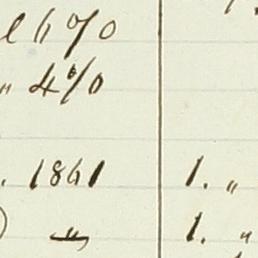 6%
„ 4%
. 1861 1. „
) „ 1. „